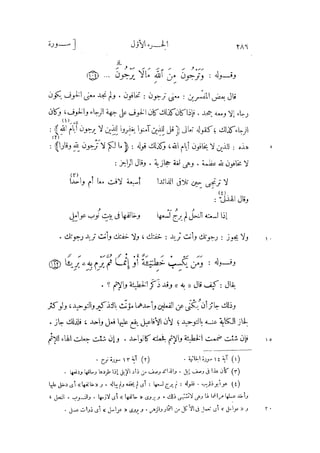 ٢٨٦ الجزء الأول [ سورة
وقوله : وَتَرْجُونَ مِنَ اللَّهِ مَا لَا يَرْجُونَ ... (١٠٤)
قال بعض المفسرين : معنى ترجون : تخافون . ولم نجد معنى الخوف يكون
رجاء إلا ومعه جحد . فإذا كان كذلك كان الخوف على جهة الرجاء والخوف ، وكان
الرجاء كذلك ؛ كقوله تعالى ﴿ قل للذين آمنوا يغفروا للذين لا يرجون أيام الله ﴾ (١)
هذه : للذين لا يخافون أيام الله ، وكذلك قوله : ﴿ ما لكم لا ترجون لله وقارا ﴾ (٢) : ٥
لا تخافون لله عظمة . وهى لغة حجازية . وقال الراجز :
لا ترتجى حين تلاقى الذائدا أسبعة لاقت معا أم واحدا (٣)
وقال الهذلىّ : (٤)
إذا لسعته النحل لم يرج لسعها وخالفها فى بيت نوب عوامل
ولا يجوز : رجوتك وأنت تريد : خفتك ، ولا خفتك وأنت تريد رجوتك . ١٠
وقوله : وَمَن يَكْسِبْ خَطِيئَةً أَوْ إِثْمًا ثُمَّ يَرْمِ بِهِ بَرِيئًا (١١٢)
يقال : كيف قال « به » وقد ذكر الخطيئة والإثم ؟ .
وذلك جائز أن يكنى عن الفعلين وأحدهما مؤنث بالتذكير والتوحيد ، ولو كثر
لجاز الكناية عنه بالتوحيد ؛ لأن الأفاعيل يقع عليها فعل واحد ، فلذلك جاز .
فإن شئت ضممت الخطيئة والإثم فجعلته كالواحد . وإن شئت جعلت الهاء للإثم ١٥
(١) آية ١٤ سورة الجاثية . (٢) آية ١٣ سورة نوح .
(٣)
(٤) هو أبو ذؤيب . وقوله : لم يرج لسعها : أى لم يخفه ولم يباله . و « خالفها » أى دخل عليها
وأخذ عسلها
و « عوامل » أى تعمل فى الأكل من الثمار والزهر . ويروى « عواسل » أى ذوات عسل . ٢٠